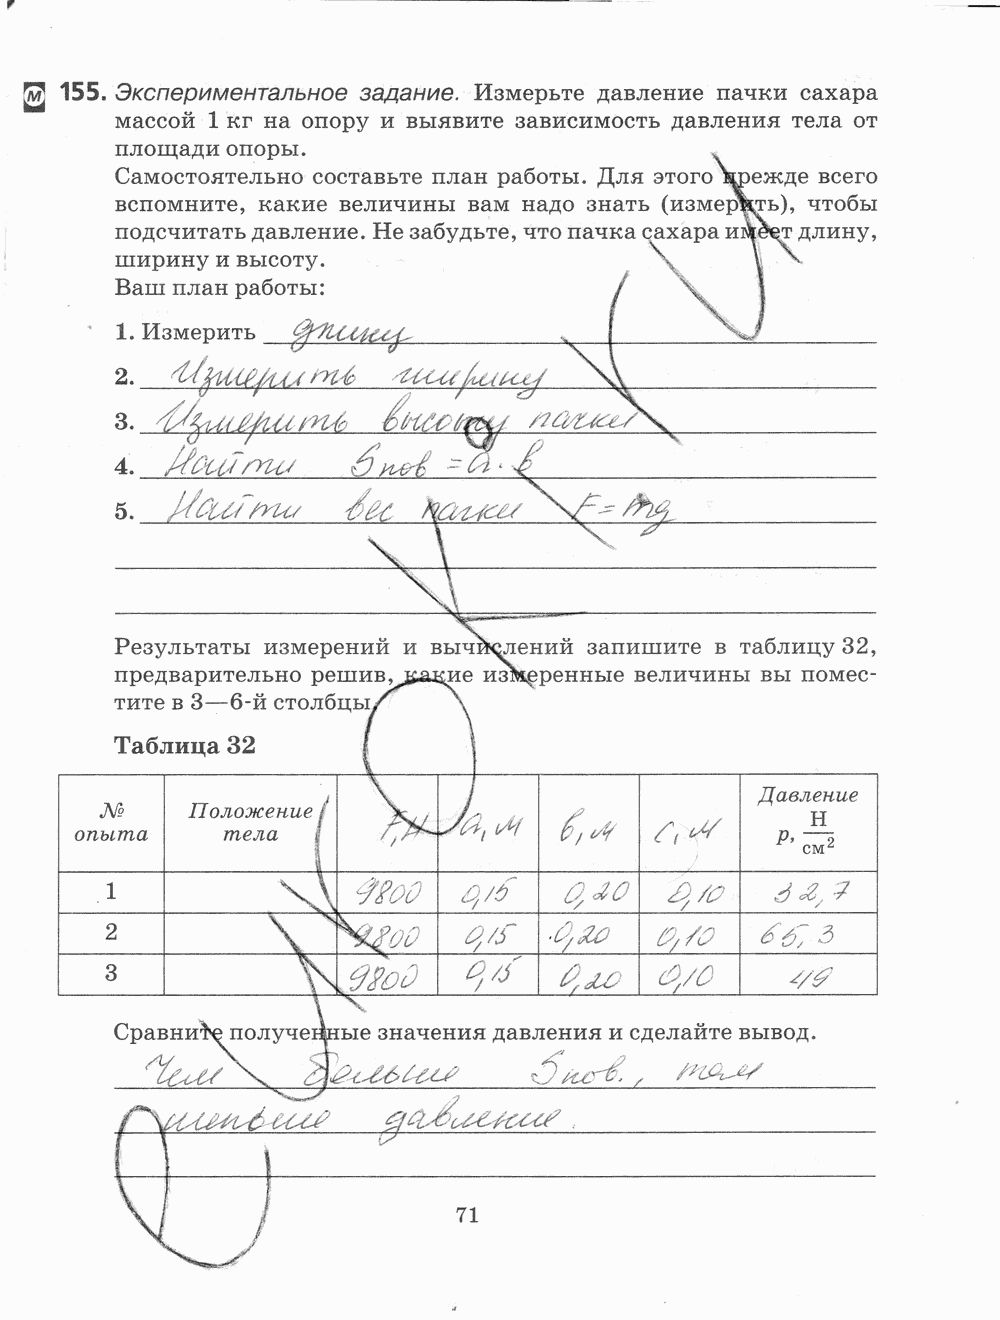 М 155. Экспериментальное задание. Измерьте давление пачки сахара
массой 1 кг на опору и выявите зависимость давления тела от
площади опоры.
Самостоятельно составьте план работы. Для этого прежде всего
вспомните, какие величины вам надо знать (измерить), чтобы
подсчитать давление. Не забудьте, что пачка сахара имеет длину,
ширину и высоту.
Ваш план работы:
1. Измерить длину
2. Измерить ширину
3. Измерить высоту пачки
4. Найти Sпов = a · b
5. Найти вес пачки F = mg
Результаты измерений и вычислений запишите в таблицу 32,
предварительно решив, какие измеренные величины вы помес-
тите в 3—6-й столбцы.
Таблица 32
№ опыта Положение тела F, H a, м b, м c, м Давление p, Н/см²
1 9800 0,15 0,20 0,10 32,7
2 9800 0,15 0,20 0,10 65,3
3 9800 0,15 0,20 0,10 49
Сравните полученные значения давления и сделайте вывод.
Чем больше Sпов., тем
меньше давление.
71